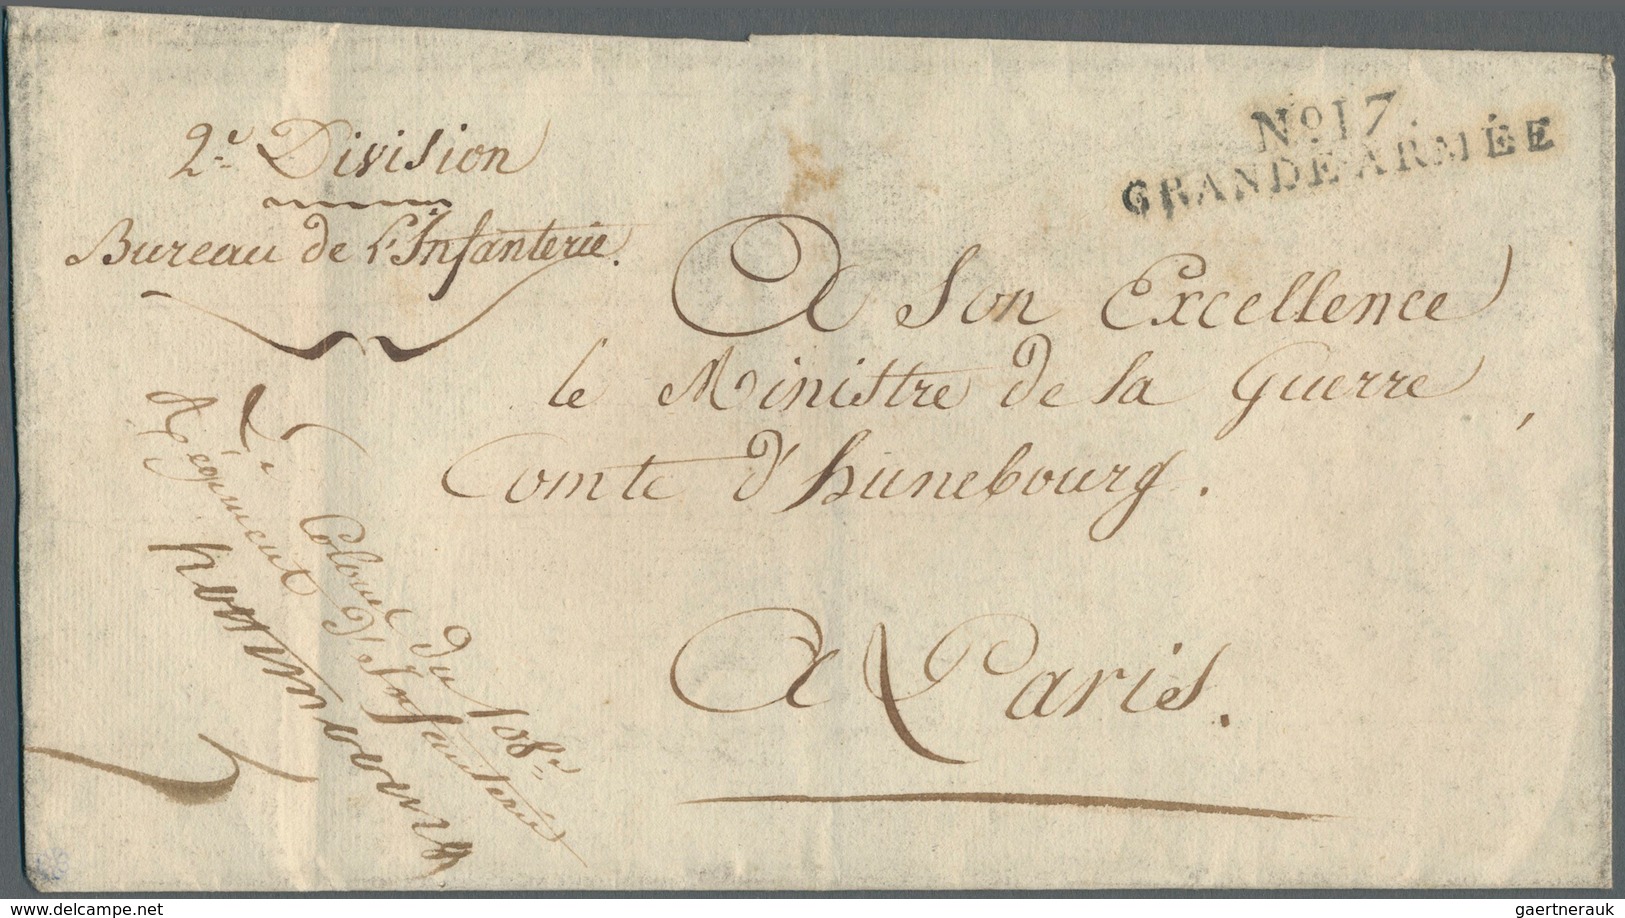 2.e Division
Bureau de l'Infanterie.
No 17.
GRANDE-ARMÉE
A Son Excellence
le Ministre de la Guerre,
Comte d'hunebourg.
A Paris.
Le Colonel du 108.e
Régiment d'Infanterie
delcampe.net
gaertnerauk